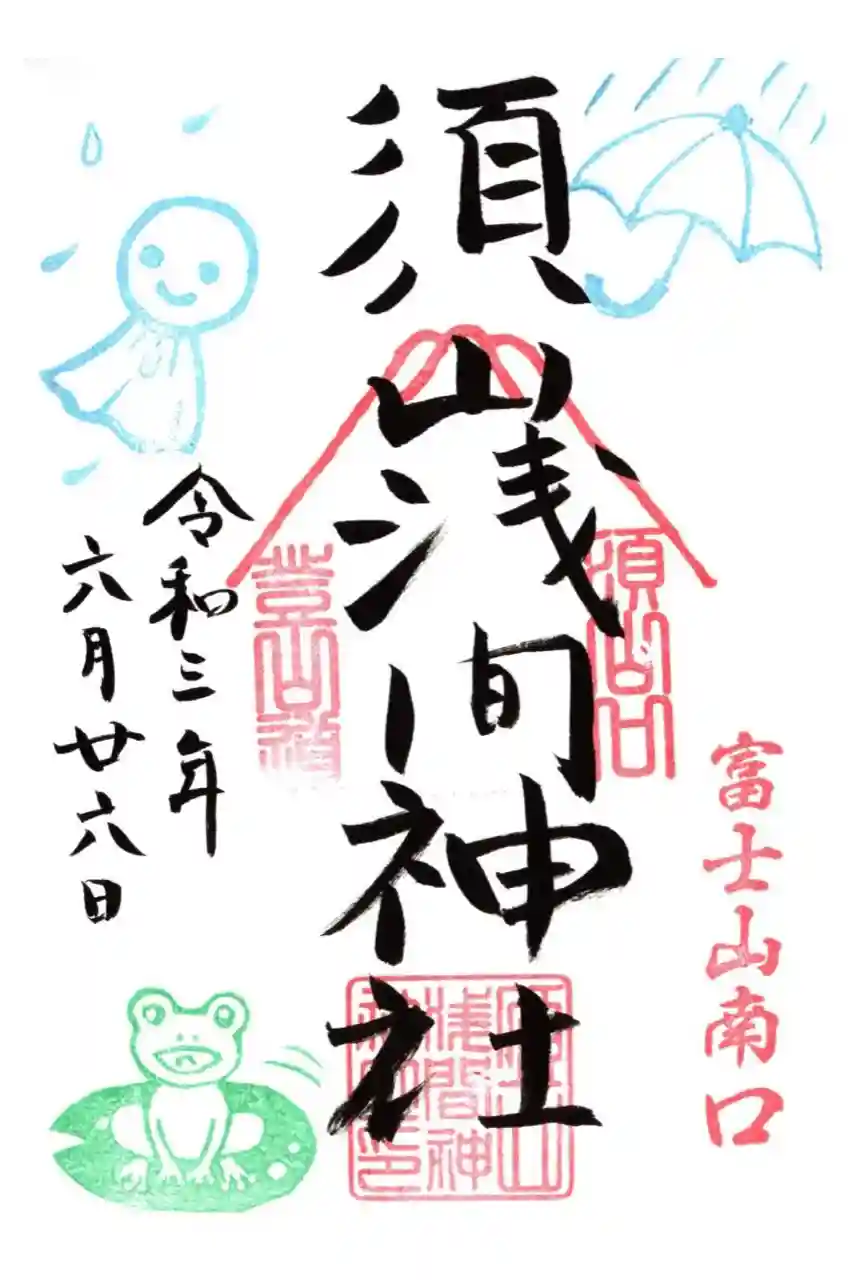 富士山南口
須山口
須山浅間神社
須山浅間神社之印
登山道
令和三年
六月廿六日